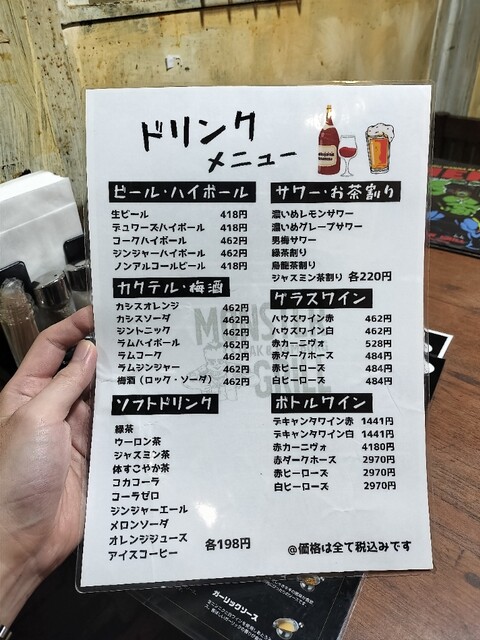 ドリンク
メニュー
ビール・ハイボール
生ビール 418円
デュワーズハイボール 418円
コークハイボール 462円
ジンジャーハイボール 462円
ノンアルコールビール 418円
カクテル・梅酒
カシスオレンジ 462円
カシスソーダ 462円
ジントニック 462円
ラムハイボール 462円
ラムコーク 462円
ラムジンジャー 462円
梅酒（ロック・ソーダ） 462円
ソフトドリンク
緑茶
ウーロン茶
ジャスミン茶
体すこやか茶
コカコーラ
コーラゼロ
ジンジャーエール
メロンソーダ
オレンジジュース
アイスコーヒー 各198円
サワー・お茶割り
濃いめレモンサワー
濃いめグレープサワー
男梅サワー
緑茶割り
烏龍茶割り
ジャスミン茶割り 各220円
グラスワイン
ハウスワイン赤 462円
ハウスワイン白 462円
赤カーニヴォ 528円
赤ダークホース 484円
赤ヒーローズ 484円
白ヒーローズ 484円
ボトルワイン
デキャンタワイン赤 1441円
デキャンタワイン白 1441円
赤カーニヴォ 4180円
赤ダークホース 2970円
赤ヒーローズ 2970円
白ヒーローズ 2970円
@価格は全て税込みです
ガーリックソース